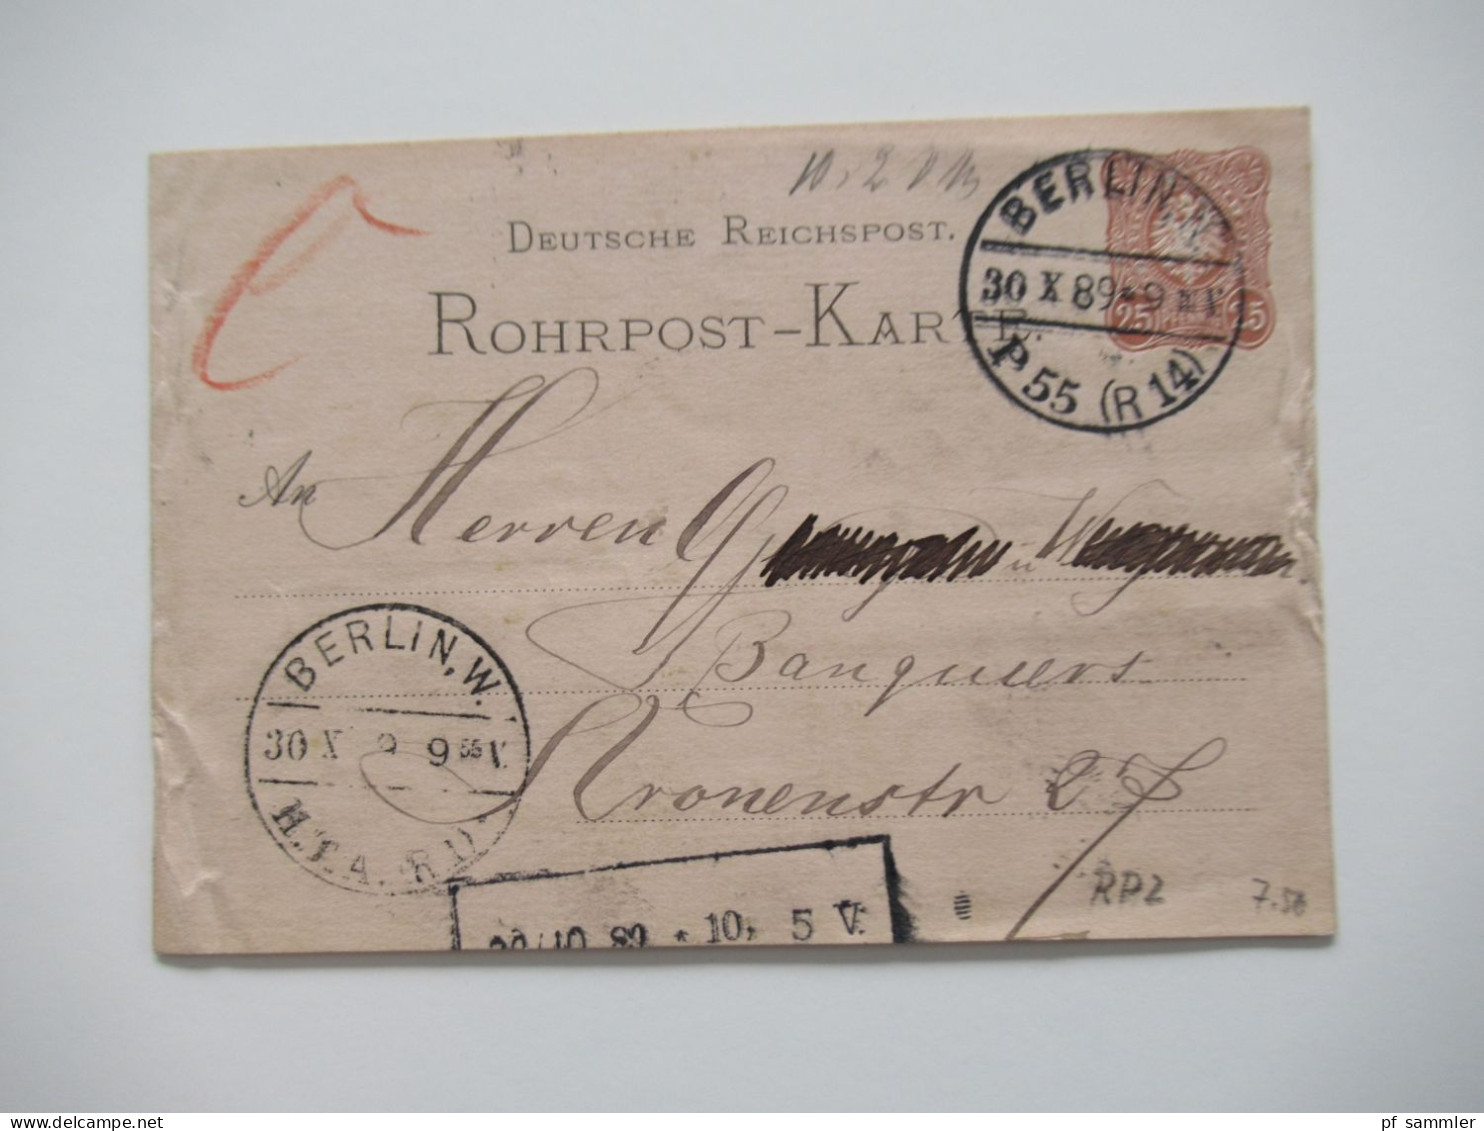 DEUTSCHE REICHSPOST.
ROHRPOST-KARTE.
BERLIN, W.
30 X 89 * 9
P 55 (R 14)
25 25
An Herren
u
Banquiers
Kronenstr 27
BERLIN, W.
30 X 9 9 55 V.
H.T.A. (R 1).
30/10 89 * 10, 5 V.
RP2
7.50
pf sammler